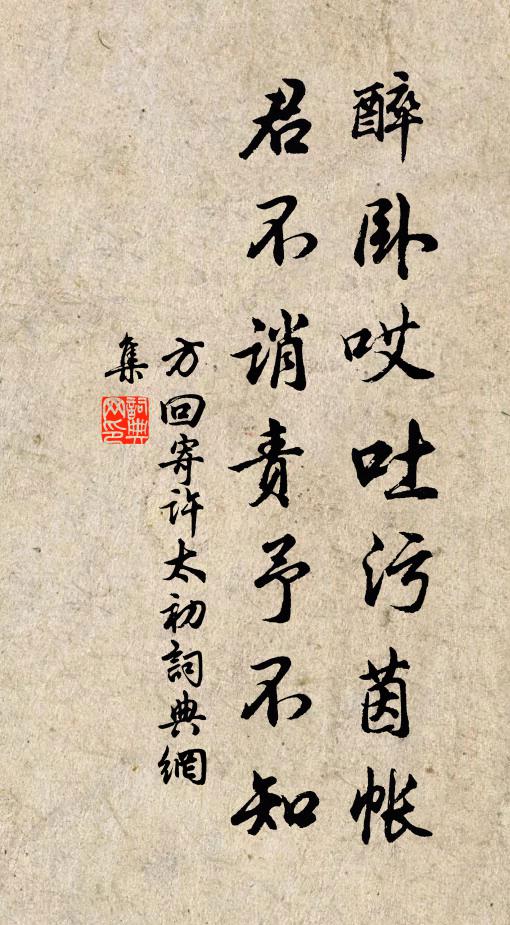 醉卧哎吐污茵帐
君不誚責予不知
方回寄许太初詞典網
集
詞典网印